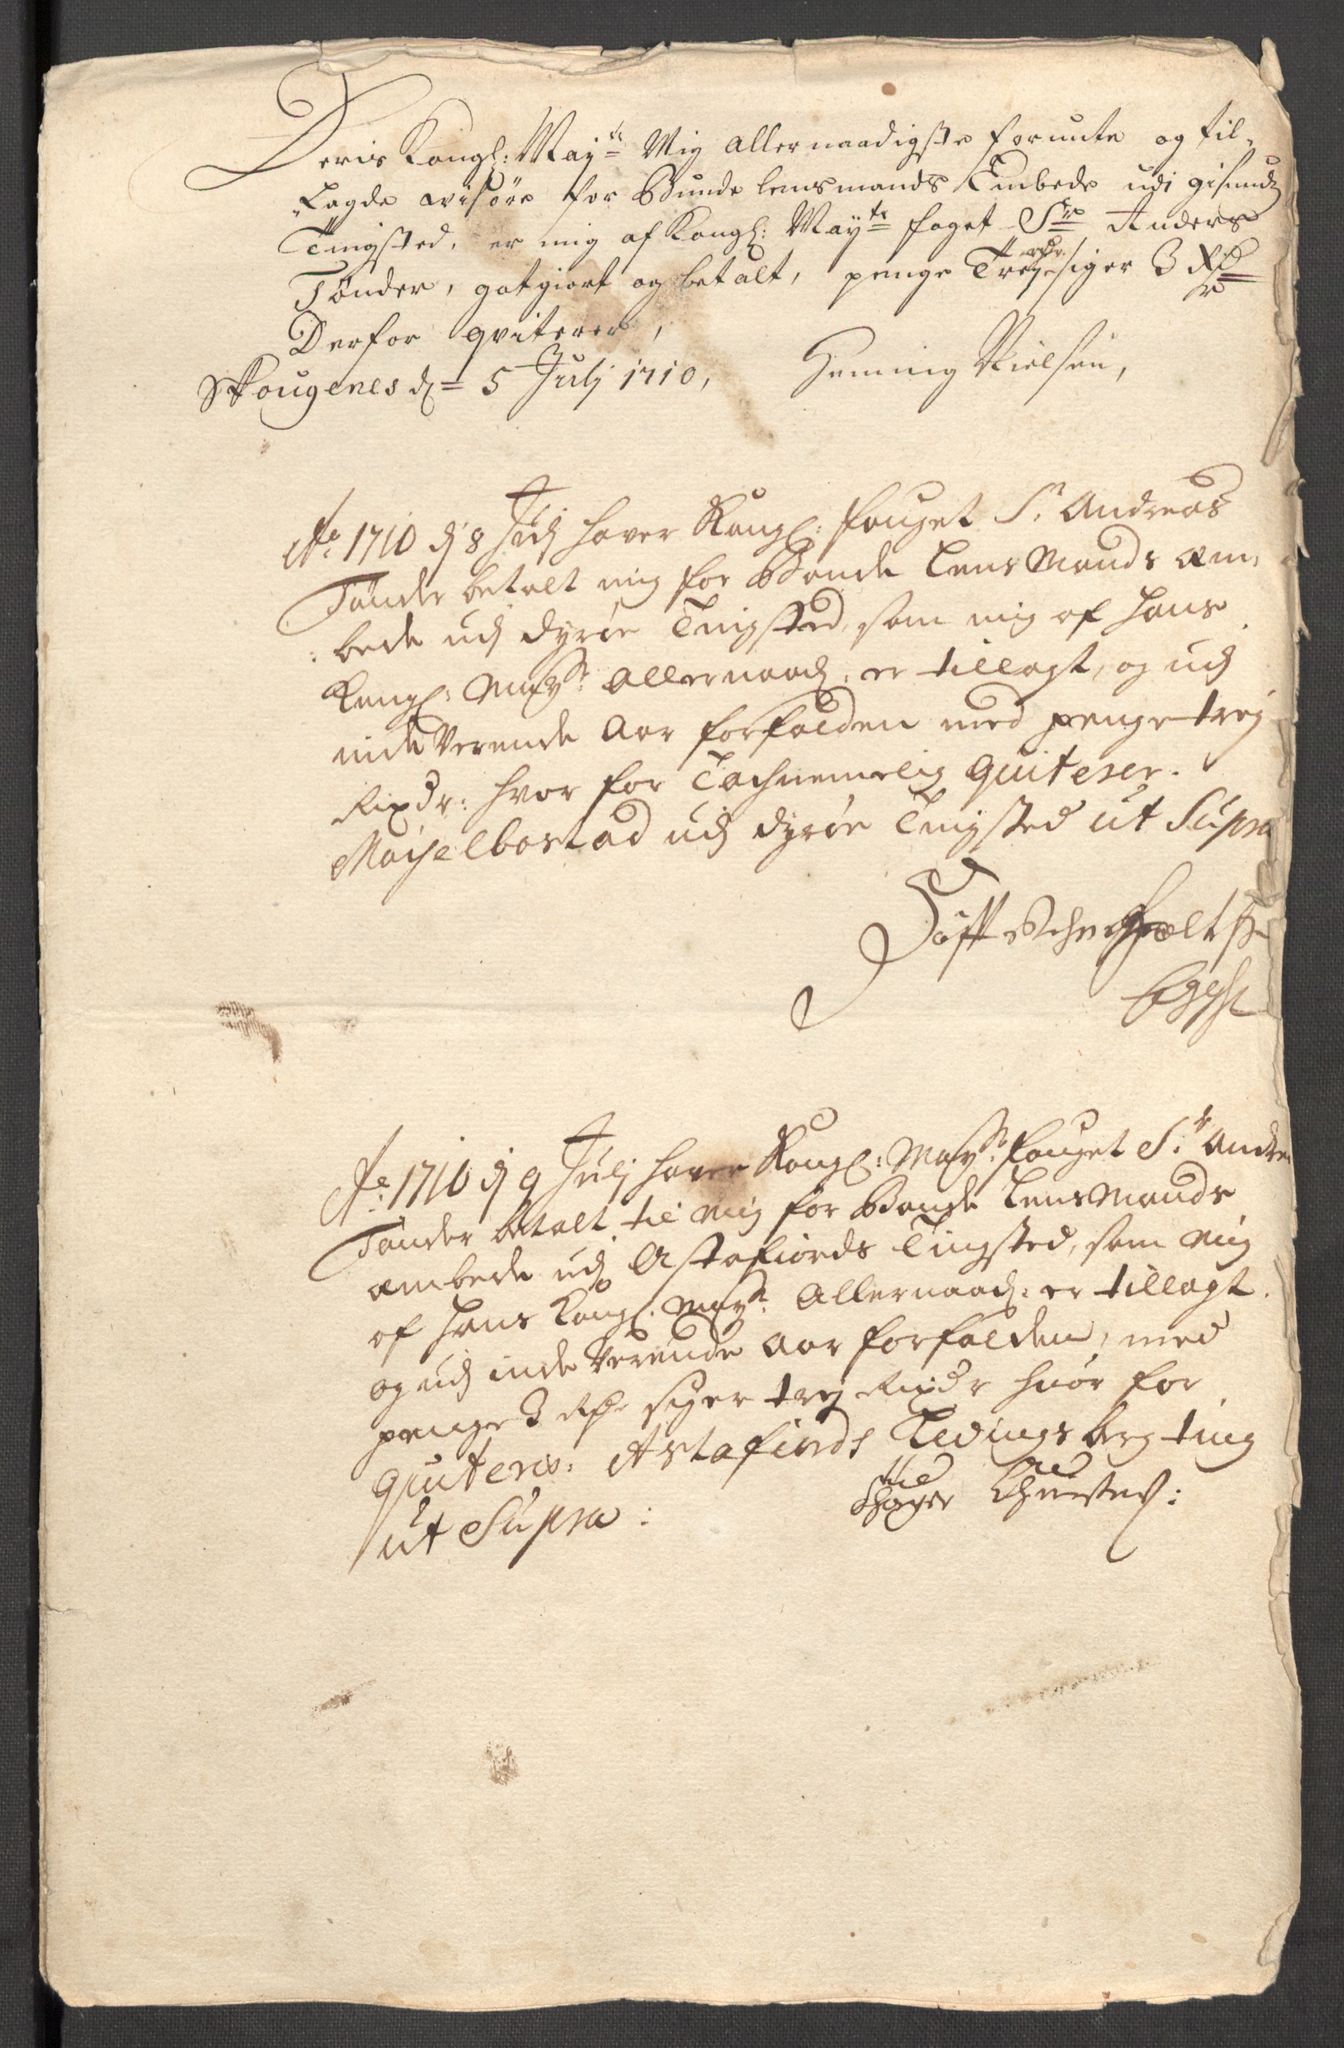 Deris Kongl: Mayts Mig Allernaadigste forunte og til-
lagde avisöre for Bunde lensmands Embede udi gisunds
Tingsted, er mig af Kongl: Mayts foget Sr Anders
Tönder, gotgiort og betalt, penge Trey rdr siger 3 Rdr
Derfor qviterer,
Skougenes d= 5 Julj 1710, Heming Nielsen,
Ao 1710 dj 8 Julj haver Kongl: fouget Sr Andreas
Tønder betalt mig for Bonde Lens Mands em-
bede udj dyröe Tingsted, som mig af hans
Kongl: Mayst: Allernaad: er tillagt, og udj
inde Verende Aar forfalden med penge trej
Rixdr: hvor for Tachnemelig Quiterer.
Mochelbostad udj dyröe Tingsted ut Supra
Tofft
Ao: 1710 dj 9 Julj haver Kongl: Mayst: fouget Sr Andrea
Tønder betalt til Mig for Bonde Lens Mands
embede udj Astafiords Tingsted, som Mig
af Hans Kongl: Mayst: Allernaad: er tillagt.
og udj inde Verende Aar forfalden, med
penge 3 Rdr siger trej Rixdr hvor for
quiteris. Astafiords Ledings berg ting
ut Supra: